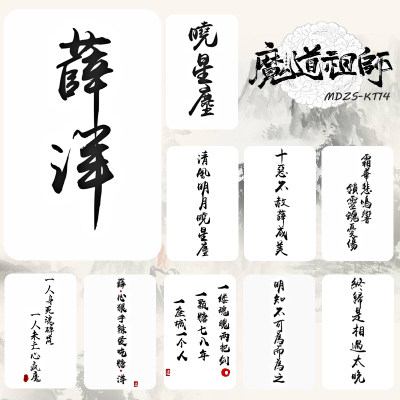 薛洋
曉星塵
魔道祖師
MDZS-KT74
清風明月曉星塵
十惡不赦薛成美
霜華悲鳴響
鎖靈魂受傷
一人身死魂碎荒
一人未亡心成魔
薛·心狠手辣愛吃糖·洋
一縷魂魄兩把劍
一顆糖七八年
一座城一个人
明知不可為而為之
終歸是相遇太晚